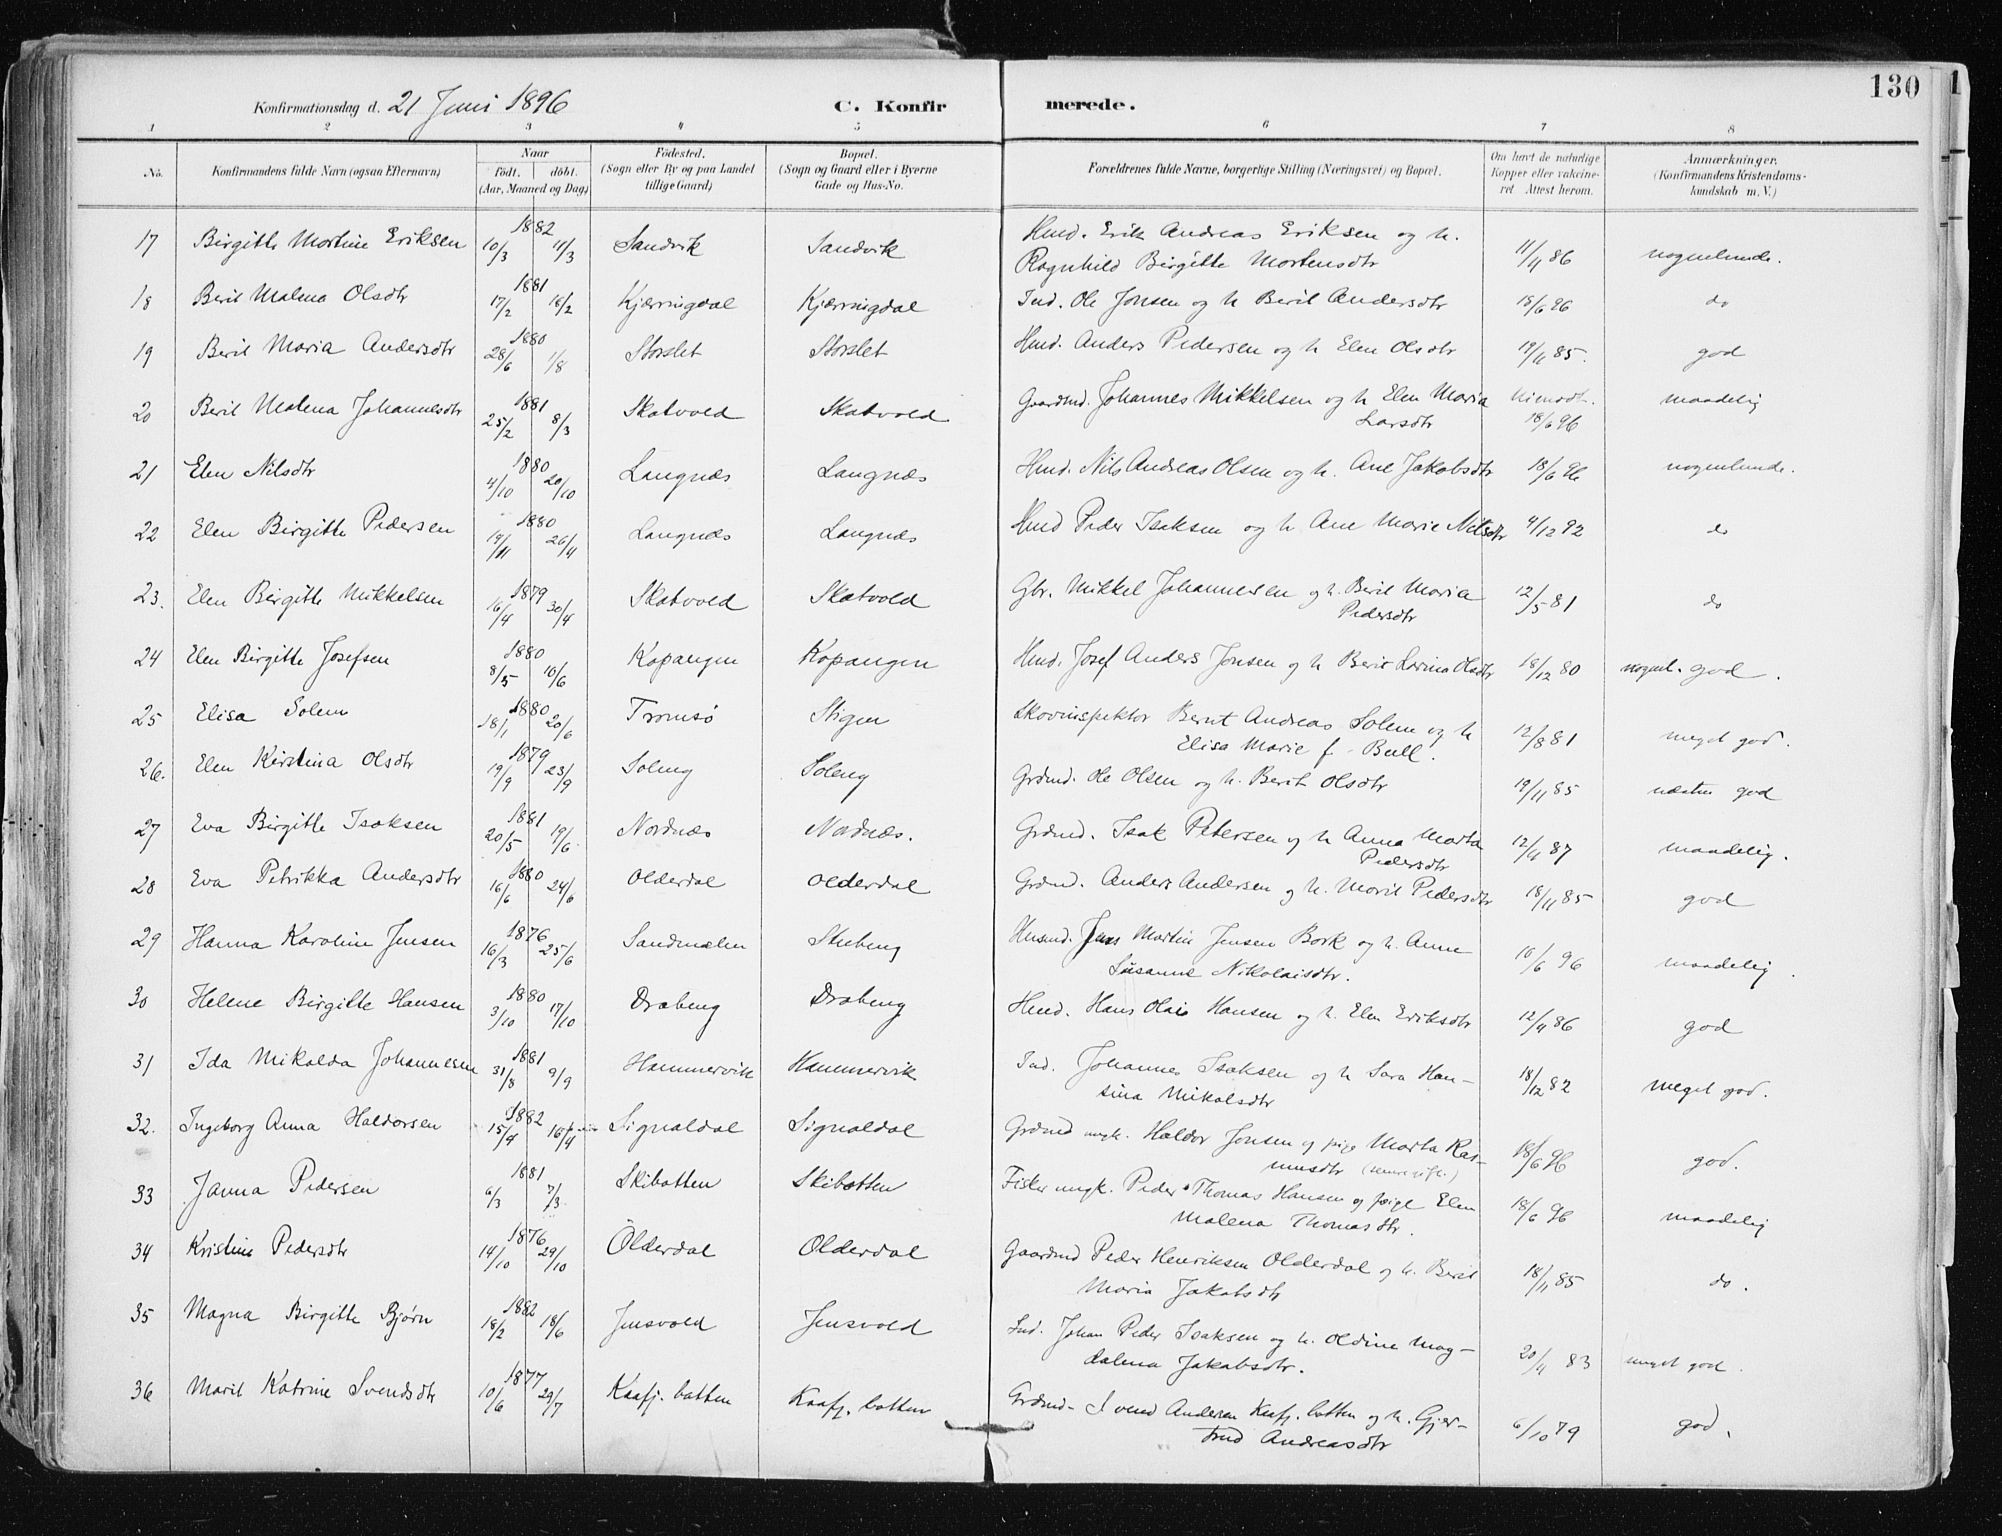 130
Konfirmationsdag d. 21 Juni 1896 C. Konfirmerede.
1 2 3 4 5 6 7 8
No. Konfirmandens fulde Navn (ogsaa Efternavn) Naar født. døbt. (Aar, Maaned og Dag) Fødested. (Sogn eller By og paa Landet tillige Gaard) Bopæl. (Sogn og Gaard eller i Byerne Gade og Hus-No. Forældrenes fulde Navne, borgerlige Stilling (Næringsvei) og Bopæl. Om havt de naturlige Kopper eller vakcineret Attest herom. Anmærkninger. (Konfirmandens Kristendomskundskab m. V.)
17 Birgitte Martine Eriksen 1882 10/3 11/3 Sandvik Sandvik Hmd. Erik Andreas Eriksen og h. 11/11 86 nogenlunde.
Ragnhild Birgitte Mortensdtr
18 Beril Malena Olsdtr 1881 17/2 18/2 Kjærringdal Kjærringdal Ind. Ole Jonsen og h Beril Andersdtr 18/6 96 do
19 Beril Maria Andersdtr 1880 28/6 1/8 Storslet Storslet Hmd. Anders Pedersen og h Elen Olsdtr 19/11 85. god
20 Beril Malena Johannesdtr 1881 25/2 8/3 Skatvold Skatvold Gaardmd. Johannes Mikkelsen og h Elen Maria maadelig
Larsdtr 18/6 96
21 Elen Nilsdtr 1880 4/10 20/10 Langnæs Langnæs Hmd. Nils Andreas Olsen og h. Ane Jakobsdtr 18/6 96 nogenlunde.
22 Elen Birgitte Pedersen 1880 26/11 Langnæs Langnæs Hmd Peder Isaksen og h Ane Marie Nilsdtr 4/12 92 do
23. Elen Birgitte Mikkelsen 1879 16/4 30/4 Skatvold Skatvold Gbr. Mikkel Johannesen og h. Beril Maria 12/5 81 do
Pedersdtr
24 Elen Birgitte Josefsen 1880 8/5 10/6 Kopangen Kopangen Hmd. Josef Anders Jonsen og h Berit Larina Olsdtr 18/12 80 nogenl. god.
25 Elisa Solem 1880 18/1 20/6 Tromsø Stigen Skovinspektor Bernt Andreas Solem og h 12/8 81 meget god.
Elisa Marie f. Bull.
26. Elen Kirstina Olsdtr 1879 19/9 23/9 Soleng Soleng Grdmd. Ole Olsen og h. Berit Olsdtr 19/11 85 næsten god
27 Eva Birgitte Isaksen 1881 20/5 19/6 Nordnæs Nordnæs. Grdmd. Isak Petersen og h Anna Marta 12/11 87 maadelig.
Pedersdtr
28 Eva Petrikka Andersdtr 1880 16/6 24/6 Olderdal Olderdal Grdmd. Anders Andersen og h. Marit Pedersdtr 18/11 85 god
29 Hanna Karoline Jensen 1876 16/3 25/6 Sandmælen Stubeng Husmd. Jens Martin Jensen Bork og h. Anne 10/6 96 maadelig.
Susanne Nikolaisdtr.
30 Helene Birgitte Hansen 1880 3/10 17/10 Drabeng Drabeng Hmd. Hans Olai Hansen og h. Elen Eriksdtr 12/11 86 god
31 Ida Mikalda Johannesen 1881 31/8 9/9 Hammervik Hammervik Ind. Johannes Isaksen og h Sara Han- 18/12 82 meget god.
sina Mikalsdtr
32. Ingeborg Anna Haldorsen 1882 15/4 16/4 Signaldal Signaldal Grdmd ungk. Haldor Jonsen og pige Marta Ras- 18/6 96 god.
musdtr
33 Janna Pedersen 1881 6/3 7/3. Skibotten Skibotten Fisker ungk. Peder Thomas Hansen og pige Elen 18/6 96 maadelig
Malena Thomasdtr.
34 Kristine Pedersdtr 1876 14/10 29/10 Olderdal Olderdal Gaardmd Peder Henriksen Olderdal og h. Beril 18/11 85 do.
Maria Jakobsdtr
35 Magna Birgitte Bjørn 1882 18/2 18/6 Jensvold Jensvold Ind. Johan Peder Isaksen og h. Oldine Mag- 20/11 83 meget god.
dalena Jakobsdtr.
36 Marit Katrine Svendsdtr 1877 10/6 29/7 Kaafj. botten Kaafj. botten Grdmd- Svend Andersen Kaafj. botten og h. Gjer- 6/10 79 god.
trud Andreasdtr